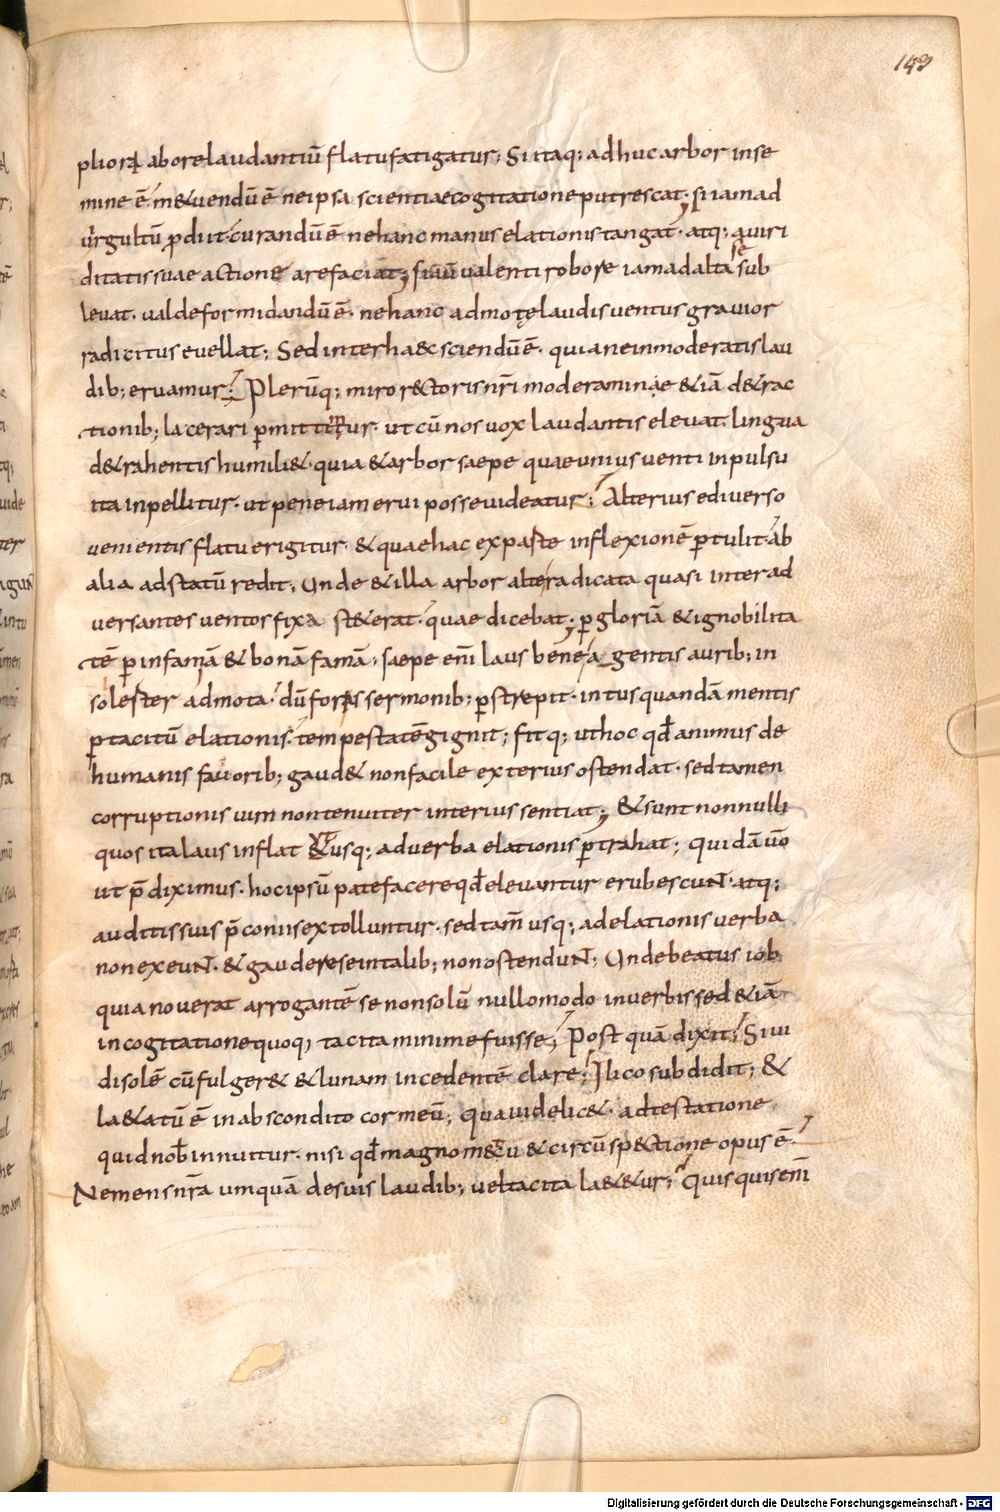 149
plior& abore laudantiū flatu fatigatur; Si itaq; adhuc arbor in se
mine ē· m&uendū ē ne ipsa scientiae cogitatione putrescat; si iam ad
virgultū ꝓdiit· curandū ē ne hanc manus elationis tangat· atq; a viri
ditatis suae actione arefaciat; si ū valenti robore iam ad alta se sub
levat· valde formidandū ē· ne hanc admotę laudis ventus gravior
radicitus evellat; Sed inter ha&c sciendū ē· quia ne inmoderatis lau
dib; eruamur; Plerūq; miro r&toris nr̄i moderamine &iā d&rac
tionib; lacerari ꝑmittimur· ut cū nos vox laudantis elevat· lingua
d&rahentis humili&· quia & arbor saepe quae unius venti inpulsu
ita inpellitur· ut pene iam erui posse videatur; Alterius e diverso
venientis flatu erigitur· & quae hac ex paste inflexionē ꝑtulit· ab
alia ad statū redit; Unde & illa arbor alte radicata quasi inter ad
versantes ventos fixa st&erat· quae dicebat; ꝑ gloriā & ignobilita
tē ꝑ infamiā & bonā famā· saepe eni laus bene agentis aurib; in
solester admota· dū foris sermonib; ꝑstrepit· intus quandā mentis
ꝑ tacitū elationis· tempestatē gignit; fitq; ut hoc qđ animus de
humanis favorib; gaud& non facile exterius ostendat· sed tamen
corruptionis vim non tenuiter interius sentiat; & sunt nonnulli
quos ita laus inflat ut usq; ad verba elationis ꝑtrahat; quidā ūo
ut p̄diximus· hoc ipsū patefacere qđ elevantur erubescunt· atq;
auditis suis p̄coniis extolluntur· sed tam̄ usq; ad elationis verba
non exeunt· & gaudere se in talib; non ostendunt; Unde beatus iob
quia noverat arrogantē se non solū nullo modo in verbis sed &iā
in cogitatione quoq; tacita minime fuisse; Post quā dixit; Si vi
di solē cū fulger& & lunam incedentē clare; Ilico subdidit; &
la&atū ē in abscondito cor meū; qua videlic&· adtestatione
quid nob̄ innuitur· nisi qđ magno m&u & circūsp&tione opus ē·
Ne mens nr̄a umquā de suis laudib; vel tacita la&&ur; Quisquis eni
Digitalisierung gefördert durch die Deutsche Forschungsgemeinschaft - DFG